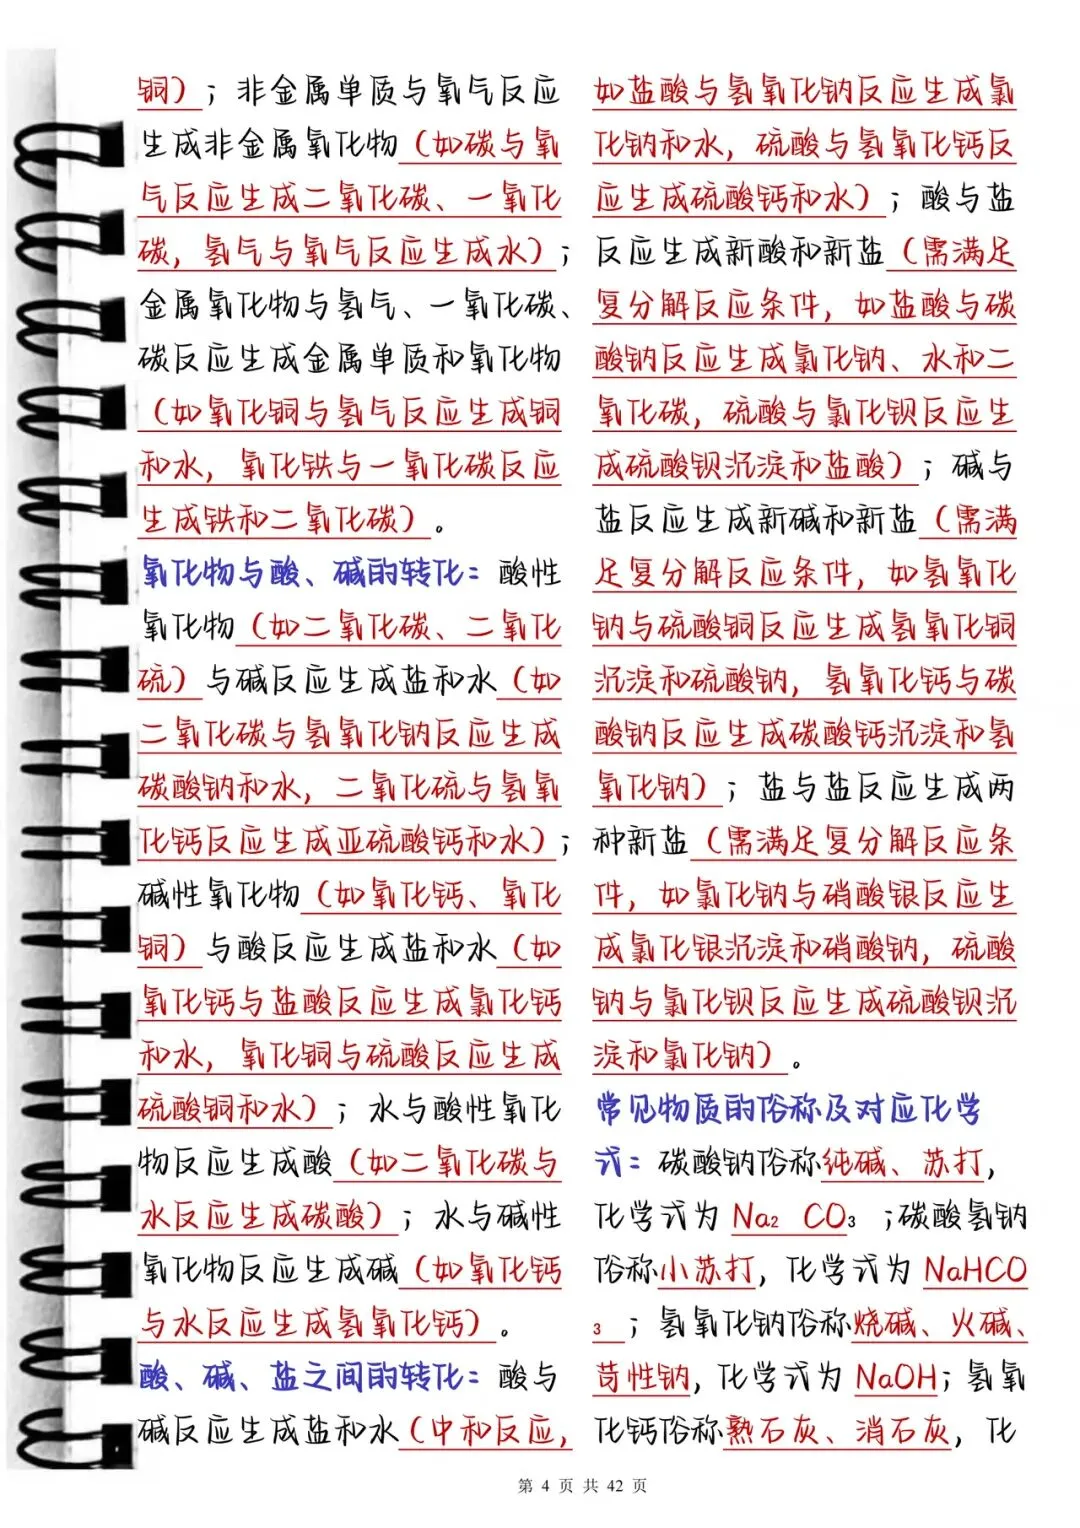 铜）；非金属单质与氧气反应
生成非金属氧化物（如碳与氧
气反应生成二氧化碳、一氧化
碳，氢气与氧气反应生成水）；
金属氧化物与氢气、一氧化碳、
碳反应生成金属单质和氧化物
（如氧化铜与氢气反应生成铜
和水，氧化铁与一氧化碳反应
生成铁和二氧化碳）。
氧化物与酸、碱的转化：酸性
氧化物（如二氧化碳、二氧化
硫）与碱反应生成盐和水（如
二氧化碳与氢氧化钠反应生成
碳酸钠和水，二氧化硫与氢氧
化钙反应生成亚硫酸钙和水）；
碱性氧化物（如氧化钙、氧化
铜）与酸反应生成盐和水（如
氧化钙与盐酸反应生成氯化钙
和水，氧化铜与硫酸反应生成
硫酸铜和水）；水与酸性氧化
物反应生成酸（如二氧化碳与
水反应生成碳酸）；水与碱性
氧化物反应生成碱（如氧化钙
与水反应生成氢氧化钙）。
酸、碱、盐之间的转化：酸与
碱反应生成盐和水（中和反应，
如盐酸与氢氧化钠反应生成氯
化钠和水，硫酸与氢氧化钙反
应生成硫酸钙和水）；酸与盐
反应生成新酸和新盐（需满足
复分解反应条件，如盐酸与碳
酸钠反应生成氯化钠、水和二
氧化碳，硫酸与氯化钡反应生
成硫酸钡沉淀和盐酸）；碱与
盐反应生成新碱和新盐（需满
足复分解反应条件，如氢氧化
钠与硫酸铜反应生成氢氧化铜
沉淀和硫酸钠，氢氧化钙与碳
酸钠反应生成碳酸钙沉淀和氢
氧化钠）；盐与盐反应生成两
种新盐（需满足复分解反应条
件，如氯化钠与硝酸银反应生
成氯化银沉淀和硝酸钠，硫酸
钠与氯化钡反应生成硫酸钡沉
淀和氯化钠）。
常见物质的俗称及对应化学
式：碳酸钠俗称纯碱、苏打，
化学式为 Na₂ CO₃ ；碳酸氢钠
俗称小苏打，化学式为 NaHCO
₃ ；氢氧化钠俗称烧碱、火碱、
苛性钠，化学式为 NaOH；氢氧
化钙俗称熟石灰、消石灰，化
第 4 页 共 42 页